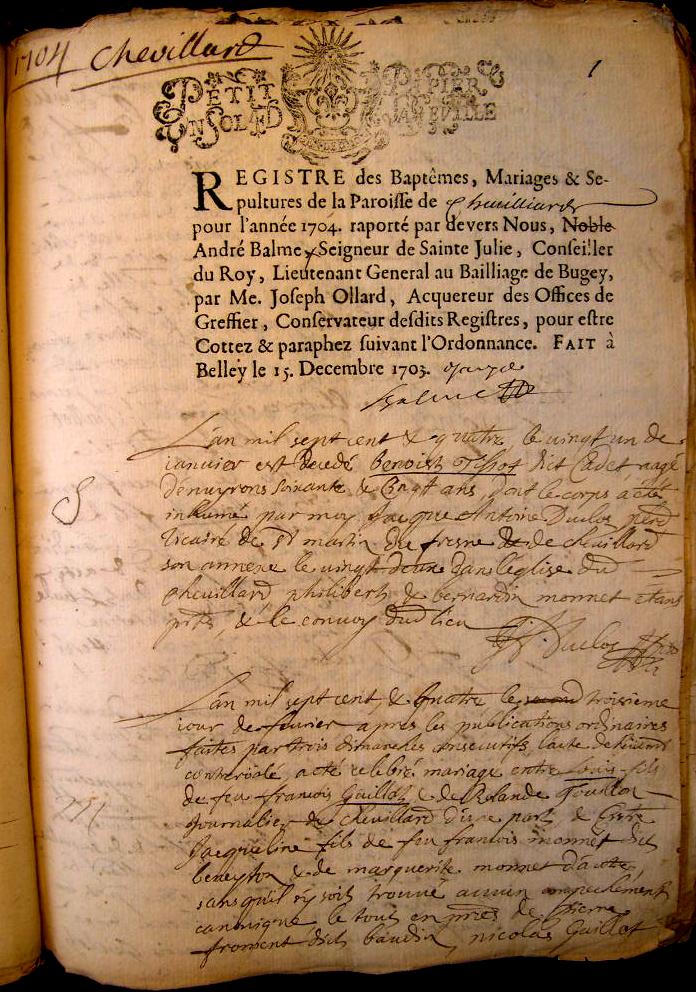 1704 Chevillard
1
PETIT PAPIER
UN SOL 4D LA FEVILLE
REGISTRE des Baptêmes, Mariages & Se-
pultures de la Paroisse de Cheuilliard
pour l'année 1704. raporté par devers Nous, Noble
André Balme, Seigneur de Sainte Julie, Conseiller
du Roy, Lieutenant General au Bailliage de Bugey,
par Me. Joseph Ollard, Acquereur des Offices de
Greffier, Conservateur desdits Registres, pour estre
Cottez & paraphez suivant l'Ordonnance. FAIT à
Belley le 15. Decembre 1703.
Balme
Lan mil sept cent & quatre, le vingt un de
ianuier est decedé benoist Tissot dict Cadet, aagé
denuyrons soixante & cinqt ans, dont le corps a esté
inhumé par moy Jacque Antoine Duclos, pbre
vicaire de St martin du fresne & de cheuillard
son annexe le vingt deux dans leglise dud
cheuillard philibert & bernardin monnet estans
pnts, & le conuoy dud lieu
Duclos pbre
Lan mil sept cent & quatre le second troisieme
iour de feurier apres les publications ordinaires
faites par trois dimanches consecutifs, lacte
controolé, a eté celebré mariage entre Louis fils
de feu francois Guillot & de Rolande
Journalier de cheuillard dune part, & Entre
Jacqueline fille de feu francois monnet dict
beneyton & de marguerite monnet dautre,
sans quil sy soit trouué aucun ampechement
canonique le tout en pnces de pierre
froment dict baudin, nicolas Guillot